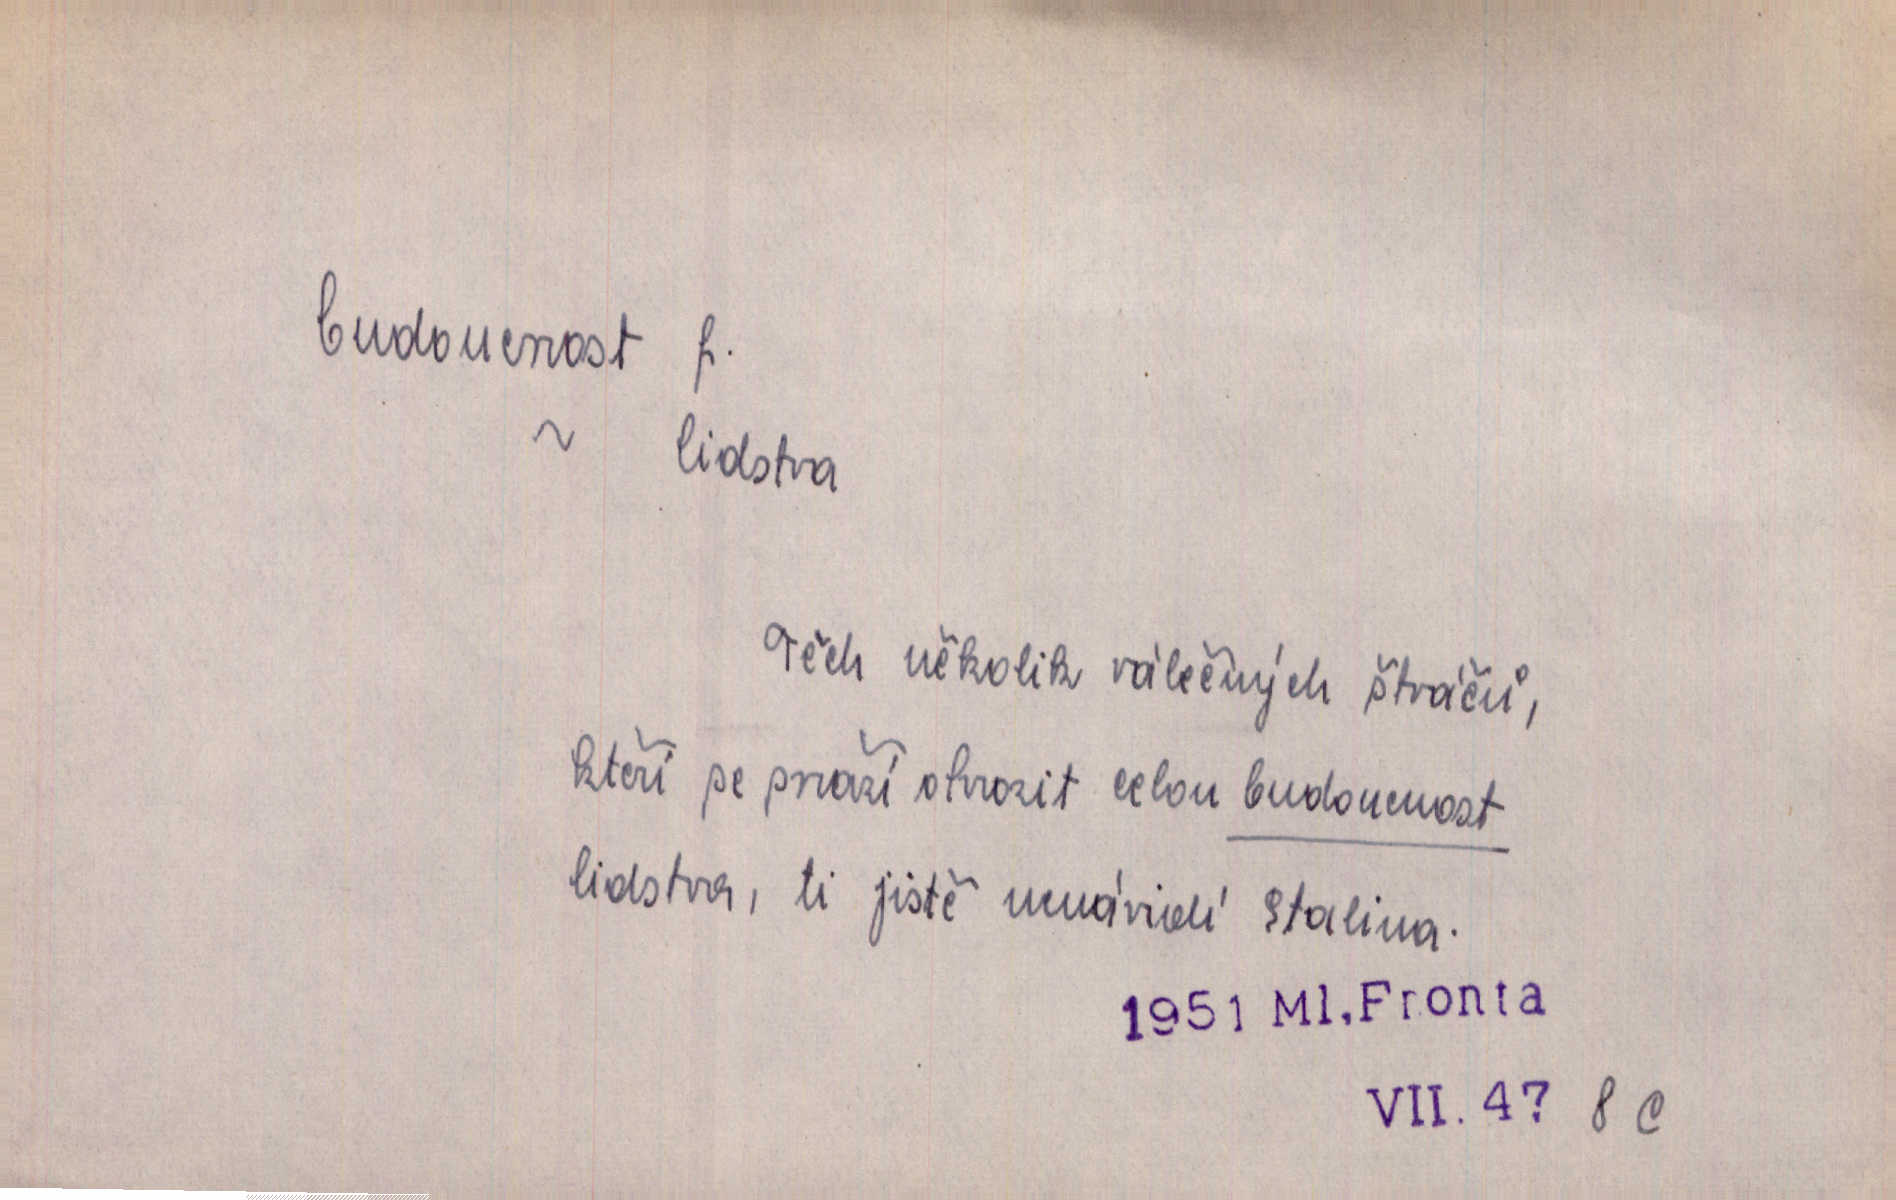 budoucnost f.
~ lidstva
Těch několik válečných štváčů,
kteří se snaží ohrozit celou budoucnost
lidstva, ti jistě nenávidí Stalina.
1951 Ml.Fronta
VII. 47 8 c